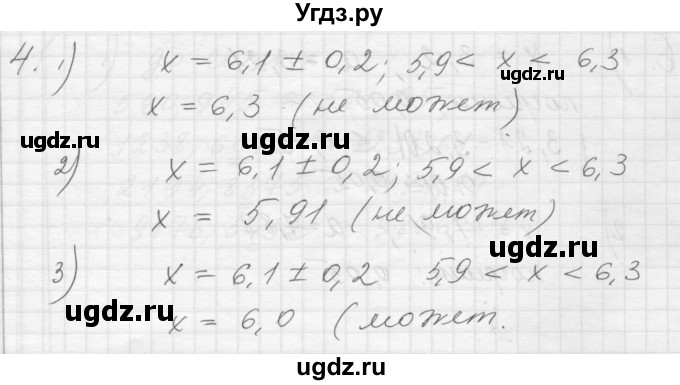 Угдз.ру
4. 1) x = 6,1 ± 0,2; 5,9 < x < 6,3
x = 6,3 (не может)
ugdz.ru ugdz.ru
2) x = 6,1 ± 0,2; 5,9 < x < 6,3
x = 5,91 (не может)
ugdz.ru
3) x = 6,1 ± 0,2 5,9 < x < 6,3
ugdz.ru ugdz.ru
x = 6,0 (может.
ugdz.ru